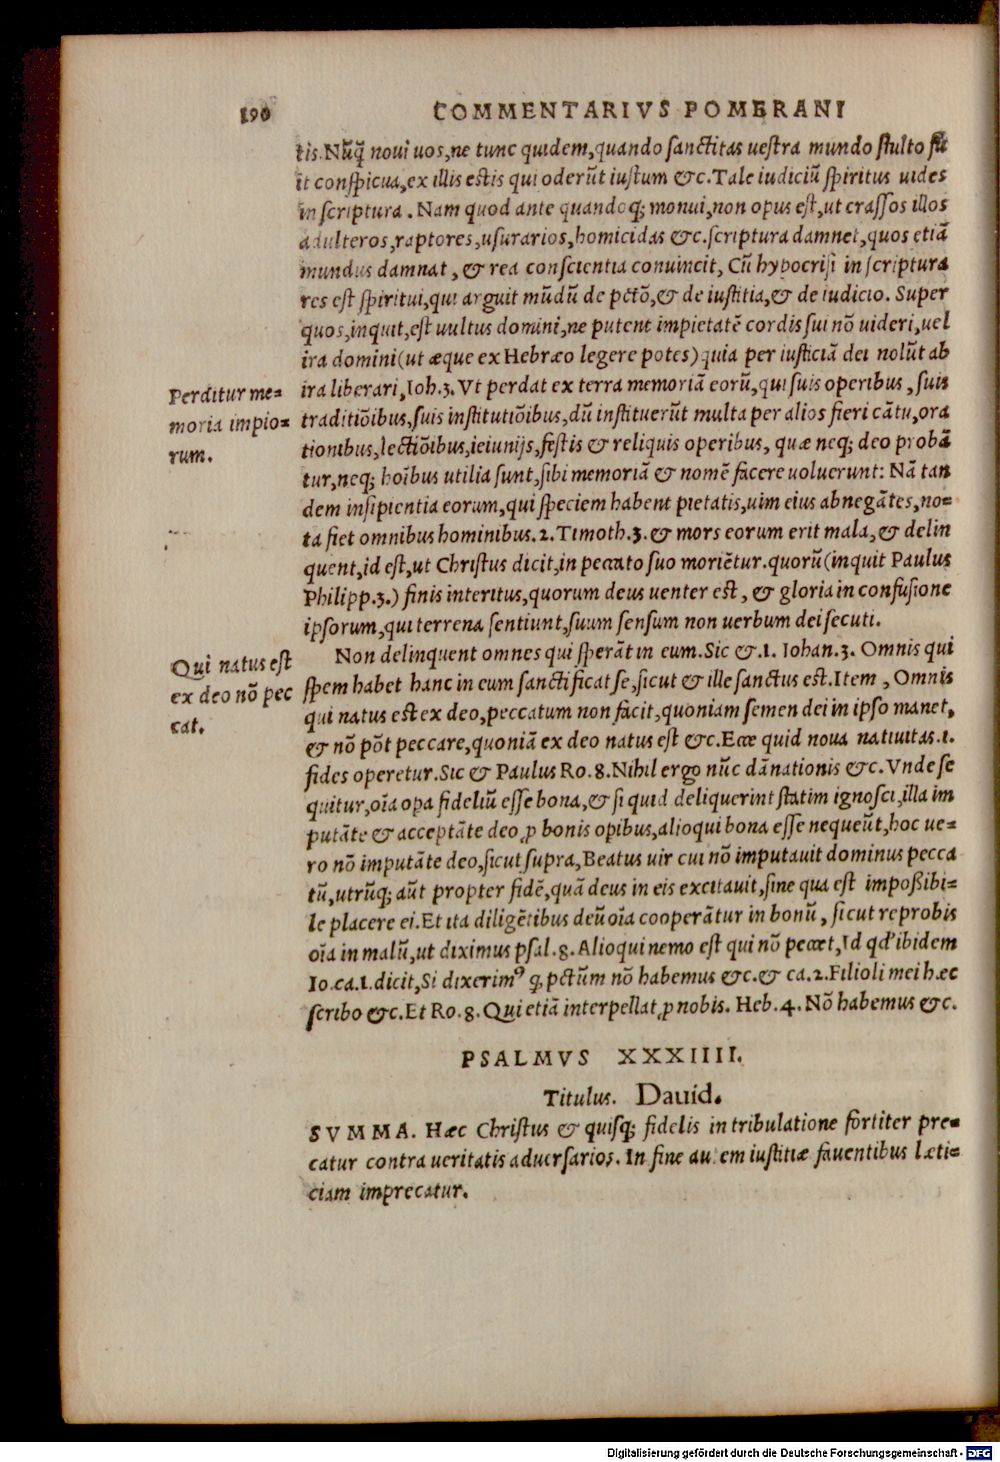 190
COMMENTARIVS POMERANI
tis. Nũq̃ noui uos, ne tunc quidem, quando sanctitas uestra mundo stulto fu
it conspicua, ex illis estis qui oderũt iustum &c. Tale iudiciũ spiritus uides
in scriptura. Nam quod ante quandoq; monui, non opus est, ut crassos illos
adulteros, raptores, usurarios, homicidas &c. scriptura damnet, quos etiã
mundus damnat, & rea conscientia conuincit, Cũ hypocrisi in scriptura
res est spiritui, qui arguit mũdũ de pctõ, & de iustitia, & de iudicio. Super
quos, inquit, est uultus domini, ne putent impietatẽ cordis sui nõ uideri, uel
ira domini (ut æque ex Hebræo legere potes) quia per iusticiã dei nolũt ab
ira liberari, Ioh. 3. Vt perdat ex terra memoriã eorũ, qui suis operibus, suis
traditiõibus, suis institutiõibus, dũ instituerũt multa per alios fieri cãtu, ora
tionibus, lectiõibus, ieiunijs, festis & reliquis operibus, quæ neq; deo probã
tur, neq; hoĩbus utilia sunt, sibi memoriã & nomẽ facere uoluerunt: Nã tan
dem insipientia eorum, qui speciem habent pietatis, uim eius abnegãtes, no=
ta fiet omnibus hominibus. 2. Timoth. 3. & mors eorum erit mala, & delin
quent, id est, ut Christus dicit, in peccato suo moriẽtur. quorũ (inquit Paulus
Philipp. 3.) finis interitus, quorum deus uenter est, & gloria in confusione
ipsorum, qui terrena sentiunt, suum sensum non uerbum dei secuti.
Perditur me=
moria impio=
rum.
Non delinquent omnes qui sperãt in eum. Sic & .1. Iohan. 3. Omnis qui
spem habet hanc in eum sanctificat se, sicut & ille sanctus est. Item, Omnis
qui natus est ex deo, peccatum non facit, quoniam semen dei in ipso manet,
& nõ põt peccare, quoniã ex deo natus est &c. Ecce quid noua natiuitas .i.
fides operetur. Sic & Paulus Ro. 8. Nihil ergo nũc dãnationis &c. Vnde se
quitur, oĩa opa fideliũ esse bona, & si quid deliquerint statim ignosci, illa im
putãte & acceptãte deo ꝓ bonis opibus, alioqui bona esse nequeũt, hoc ue=
ro nõ imputãte deo, sicut supra, Beatus uir cui nõ imputauit dominus pecca
tũ, utrũq; aũt propter fidẽ, quã deus in eis excitauit, sine qua est impoßibi=
le placere ei. Et ita diligẽtibus deũ oĩa cooperãtur in bonũ, sicut reprobis
oĩa in malũ, ut diximus psal. 8. Alioqui nemo est qui nõ peccet, Id qd' ibidem
Io. ca. 1. dicit, Si dixerimꝰ ꝙ pctũm nõ habemus &c. & ca. 2. Filioli mei hæc
scribo &c. Et Ro. 8. Qui etiã interpellat ꝓ nobis. Heb. 4. Nõ habemus &c.
Qui natus est
ex deo nõ pec
cat.
PSALMVS XXXIIII.
Titulus. Dauid.
SVMMA. Hæc Christus & quisq; fidelis in tribulatione fortiter pre=
catur contra ueritatis aduersarios. In fine autem iustitiæ fauentibus læti=
ciam imprecatur.
Digitalisierung gefördert durch die Deutsche Forschungsgemeinschaft - DFG